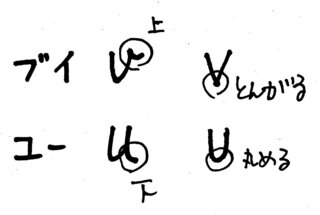 上
ブイ v V とんがる
ユー u U 丸める
下